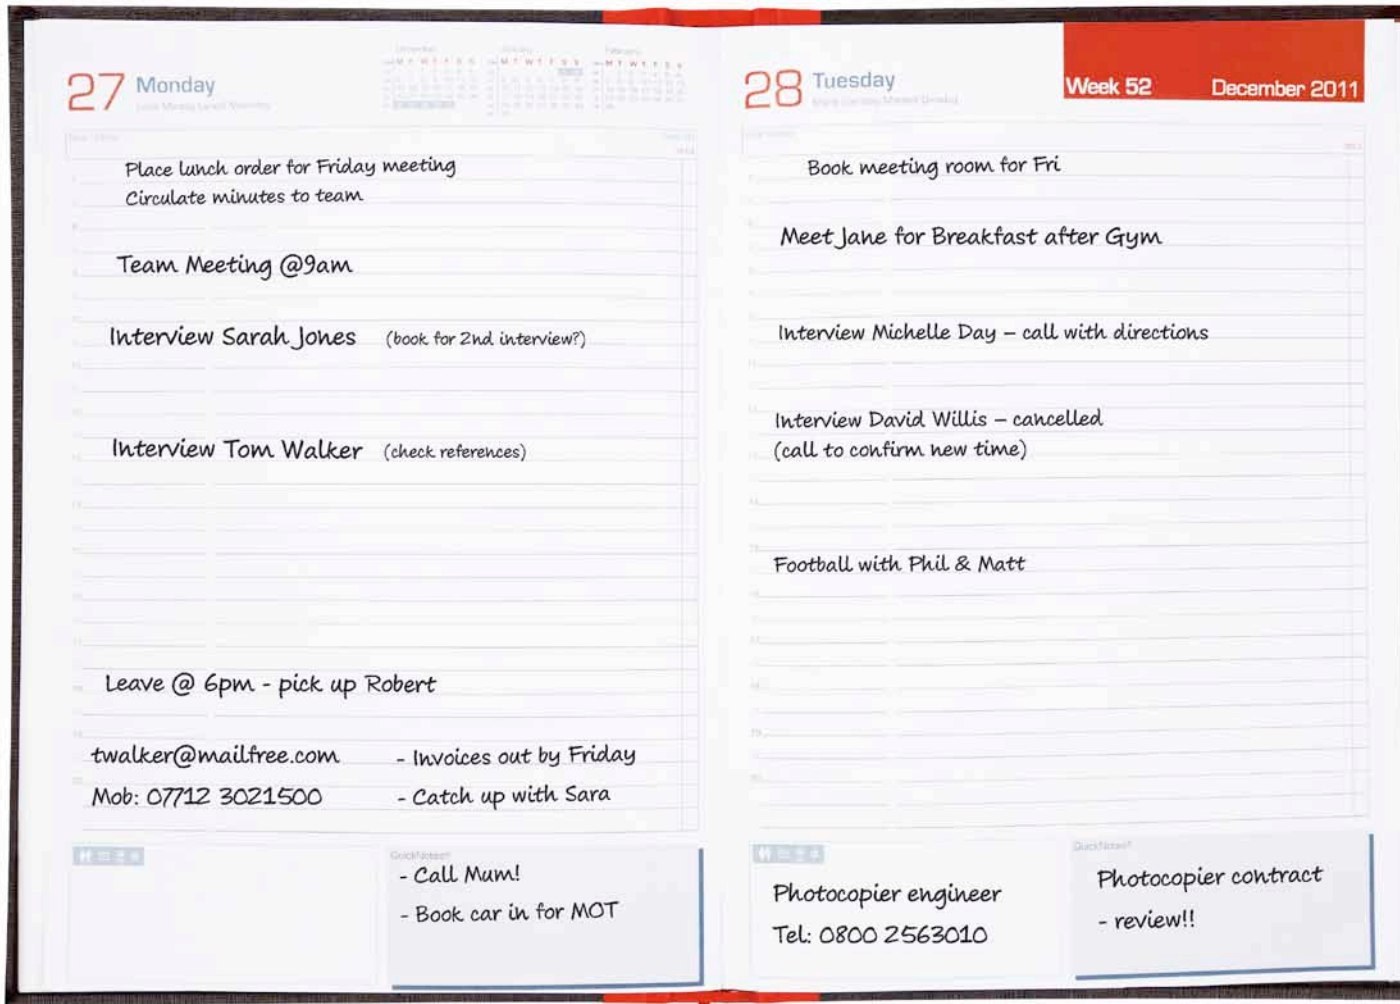 27 Monday
Place lunch order for Friday meeting
Circulate minutes to team
Team Meeting @9am
Interview Sarah Jones (book for 2nd interview?)
Interview Tom Walker (check references)
Leave @ 6pm - pick up Robert
twalker@mailfree.com - Invoices out by Friday
Mob: 07712 3021500 - Catch up with Sara
QuickNotes
- Call Mum!
- Book car in for MOT
28 Tuesday
Week 52 December 2011
Book meeting room for Fri
Meet Jane for Breakfast after Gym
Interview Michelle Day – call with directions
Interview David Willis – cancelled
(call to confirm new time)
Football with Phil & Matt
Photocopier engineer
Tel: 0800 2563010
QuickNotes
Photocopier contract
- review!!